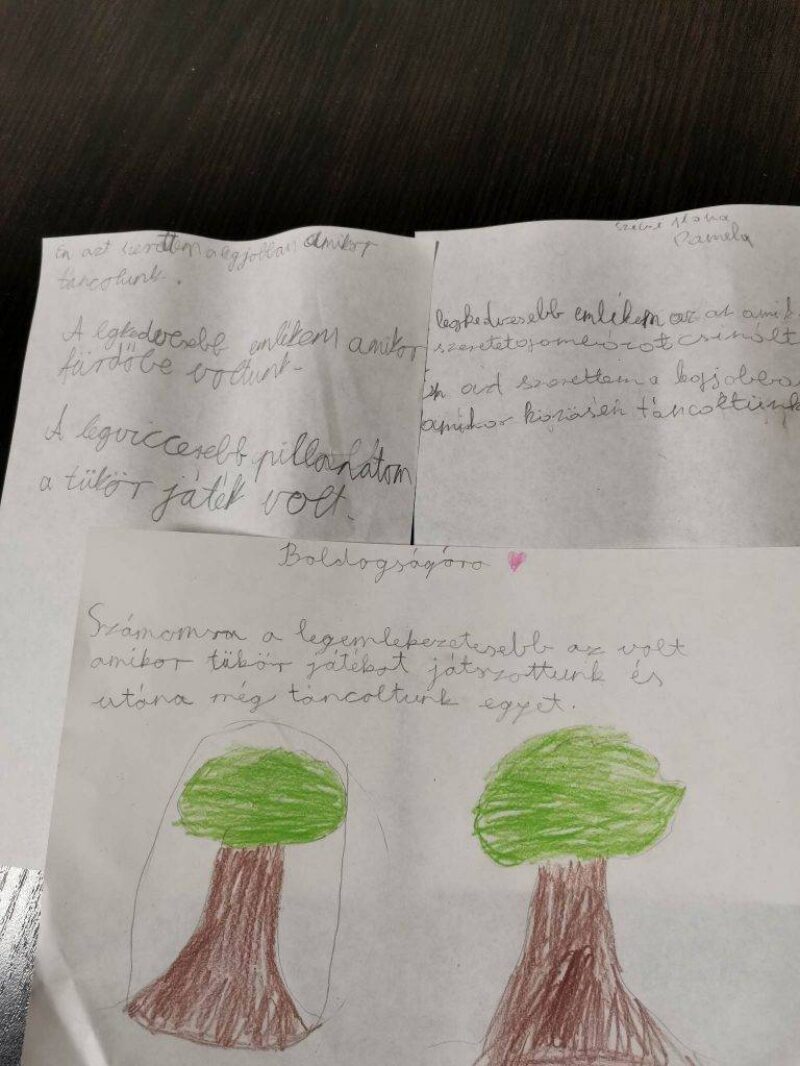 Én azt szerettem a legjobban amikor
táncolunk.
A legkedvesebb emlékem amikor
fürdőbe voltunk.
A legviccesebb pillanatom
a tükör játék volt.
Pamela
legkedvesebb emlékem az at amik
csinált
Én azt szerettem a legjobban
amikor közösen táncoltunk
Boldogságóra
Számomra a legemlékezetesebb az volt
amikor tükör játékot játszottunk és
utána még táncoltunk egyet.